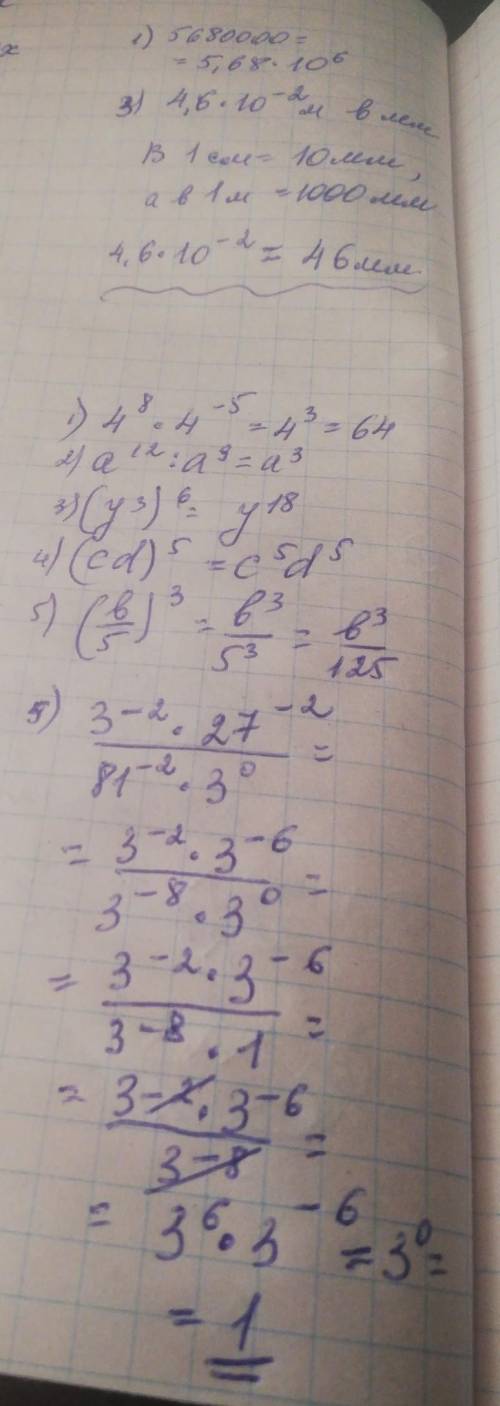 1) 5680000=
= 5,68·10⁶
3) 4,6·10⁻² м в мм
В 1 см = 10 мм,
а в 1 м = 1000 мм
4,6·10⁻² = 46 мм.
1) 4⁸·4⁻⁵ = 4³ = 64
2) a¹²:a⁹ = a³
3) (y³)⁶ = y¹⁸
4) (cd)⁵ = c⁵d⁵
5) (b/5)³ = b³/5³ = b³/125
5) (3⁻²·27⁻²)/(81⁻²·3⁰) =
= (3⁻²·3⁻⁶)/(3⁻⁸·3⁰) =
= (3⁻²·3⁻⁶)/(3⁻⁸·1) =
= (3⁻²·3⁻⁶)/(3⁻⁸) =
= 3⁶·3⁻⁶ = 3⁰ =
= 1